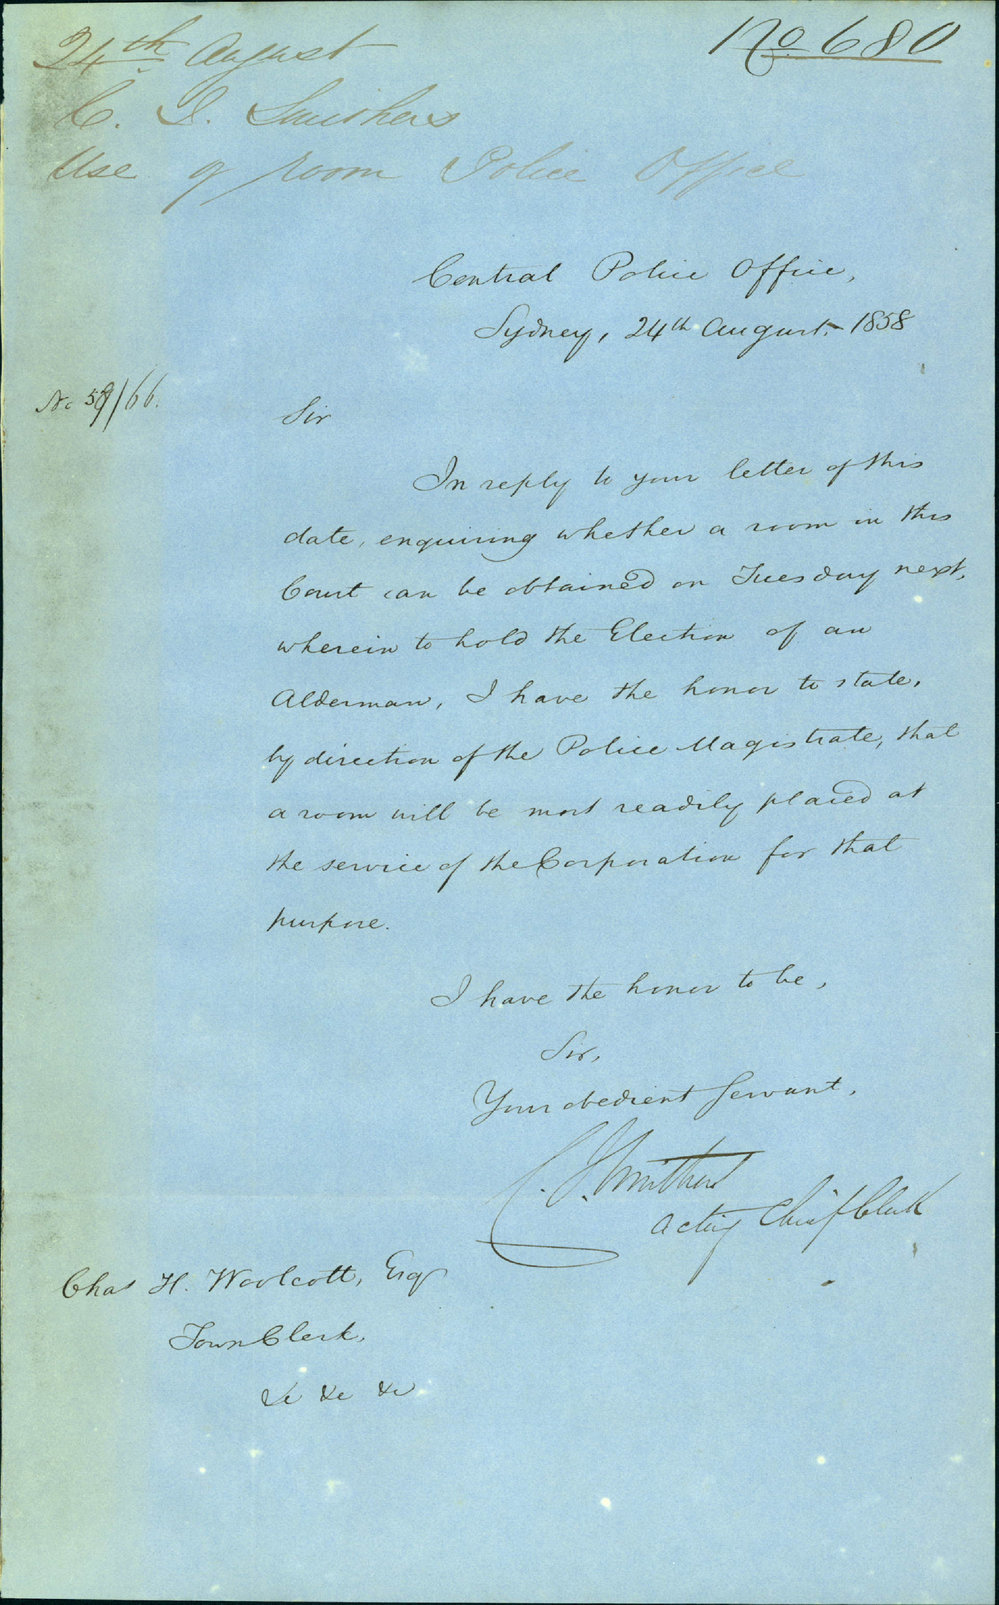 24th August
No 680
C. J. Smithers
Use of room Police Office
Central Police Office,
Sydney, 24th August, 1858
No 58/66.
Sir
In reply to your letter of this
date, enquiring whether a room in this
Court can be obtained on Tuesday next,
wherein to hold the Election of an
Alderman, I have the honor to state,
by direction of the Police Magistrate, that
a room will be most readily placed at
the service of the Corporation for that
purpose.
I have the honor to be,
Sir,
Your obedient Servant,
C. J. Smithers
Acting Chief Clerk
Chas H. Woolcott, Esqr
Town Clerk,
&c &c &c